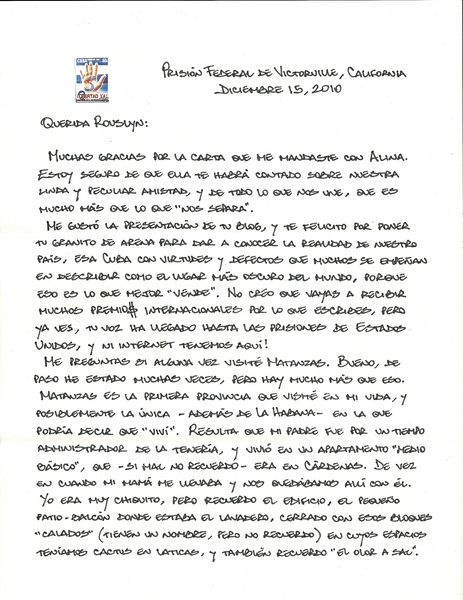 Prisión Federal de Victorville, California
Diciembre 15, 2010
Querida Rouslyn:
Muchas gracias por la carta que me mandaste con Alina.
Estoy seguro de que ella te habrá contado sobre nuestra
linda y peculiar amistad, y de todo lo que nos une, que es
mucho más que lo que "nos separa".
Me gustó la presentación de tu blog, y te felicito por poner
tu granito de arena para dar a conocer la realidad de nuestro
país, esa Cuba con virtudes y defectos que muchos se empeñan
en describir como el lugar más oscuro del mundo, porque
eso es lo que mejor "vende". No creo que vayas a recibir
muchos premio$ internacionales por lo que escribes, pero
ya ves, tu voz ha llegado hasta las prisiones de Estados
Unidos, y ni internet tenemos aquí!
Me preguntas si alguna vez visité Matanzas. Bueno, de
paso he estado muchas veces, pero hay mucho más que eso.
Matanzas es la primera provincia que visité en mi vida, y
posiblemente la única -además de La Habana- en la que
podría decir que "viví". Resulta que mi padre fue por un tiempo
administrador de la tenería, y vivió en un apartamento "medio
básico", que -si mal no recuerdo- era en Cárdenas. De vez
en cuando mi mamá me llevaba y nos quedábamos allí con él.
Yo era muy chiquito, pero recuerdo el edificio, el pequeño
patio-balcón donde estaba el lavadero, cerrado con esos bloques
"calados" (tienen un nombre, pero no recuerdo) en cuyos espacios
teníamos cactus en laticas, y también recuerdo "el olor a sal".